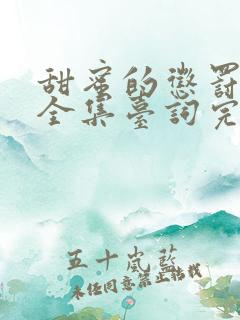 甜蜜的懲罰
全集臺詞完
五十嵐藍
未经同意禁止转载